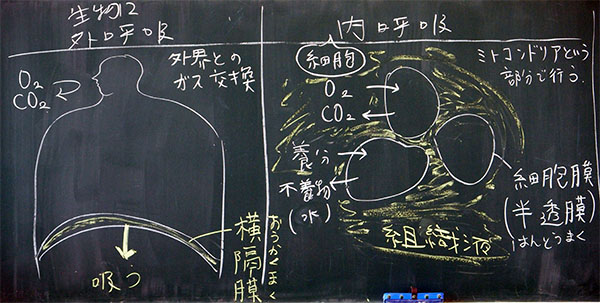 生物に
外呼吸
外界との
ガス交換
O₂
CO₂
横隔膜
おうかくまく
吸う
内呼吸
細胞
ミトコンドリアという
部分で行う.
O₂
CO₂
養分
不養物
(水)
細胞膜
(半透膜)
はんとうまく
組織液